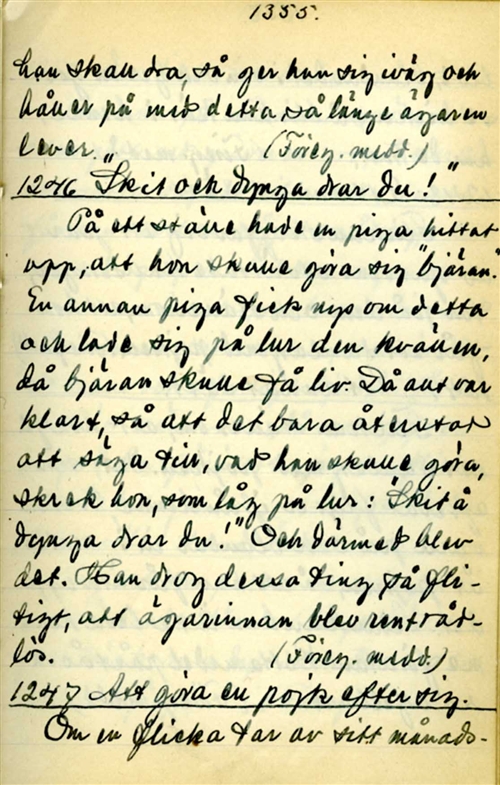 1355.
han skall dra, så ger han sig iväg och
håller på med detta, så länge ägaren
lever. (Föreg. medd.)
1246 "Skit och dynga drar du!"
På ett ställe hade en piga hittat
upp, att hon skulle göra sig "bjäran."
En annan piga fick nys om detta
och lade sig på lur den kvällen,
då bjäran skulle få liv. Då allt var
klart, så att det bara återstod
att säga till, vad han skulle göra,
skrek hon, som låg på lur: "Skit å
dynga drar du!" Och därmed blev
det. Han drog dessa ting så fli-
tigt, att ägarinnan blev rent råd-
lös. (Föreg. medd.)
1247 Att göra en pojk efter sig.
Om en flicka tar av sitt månads-